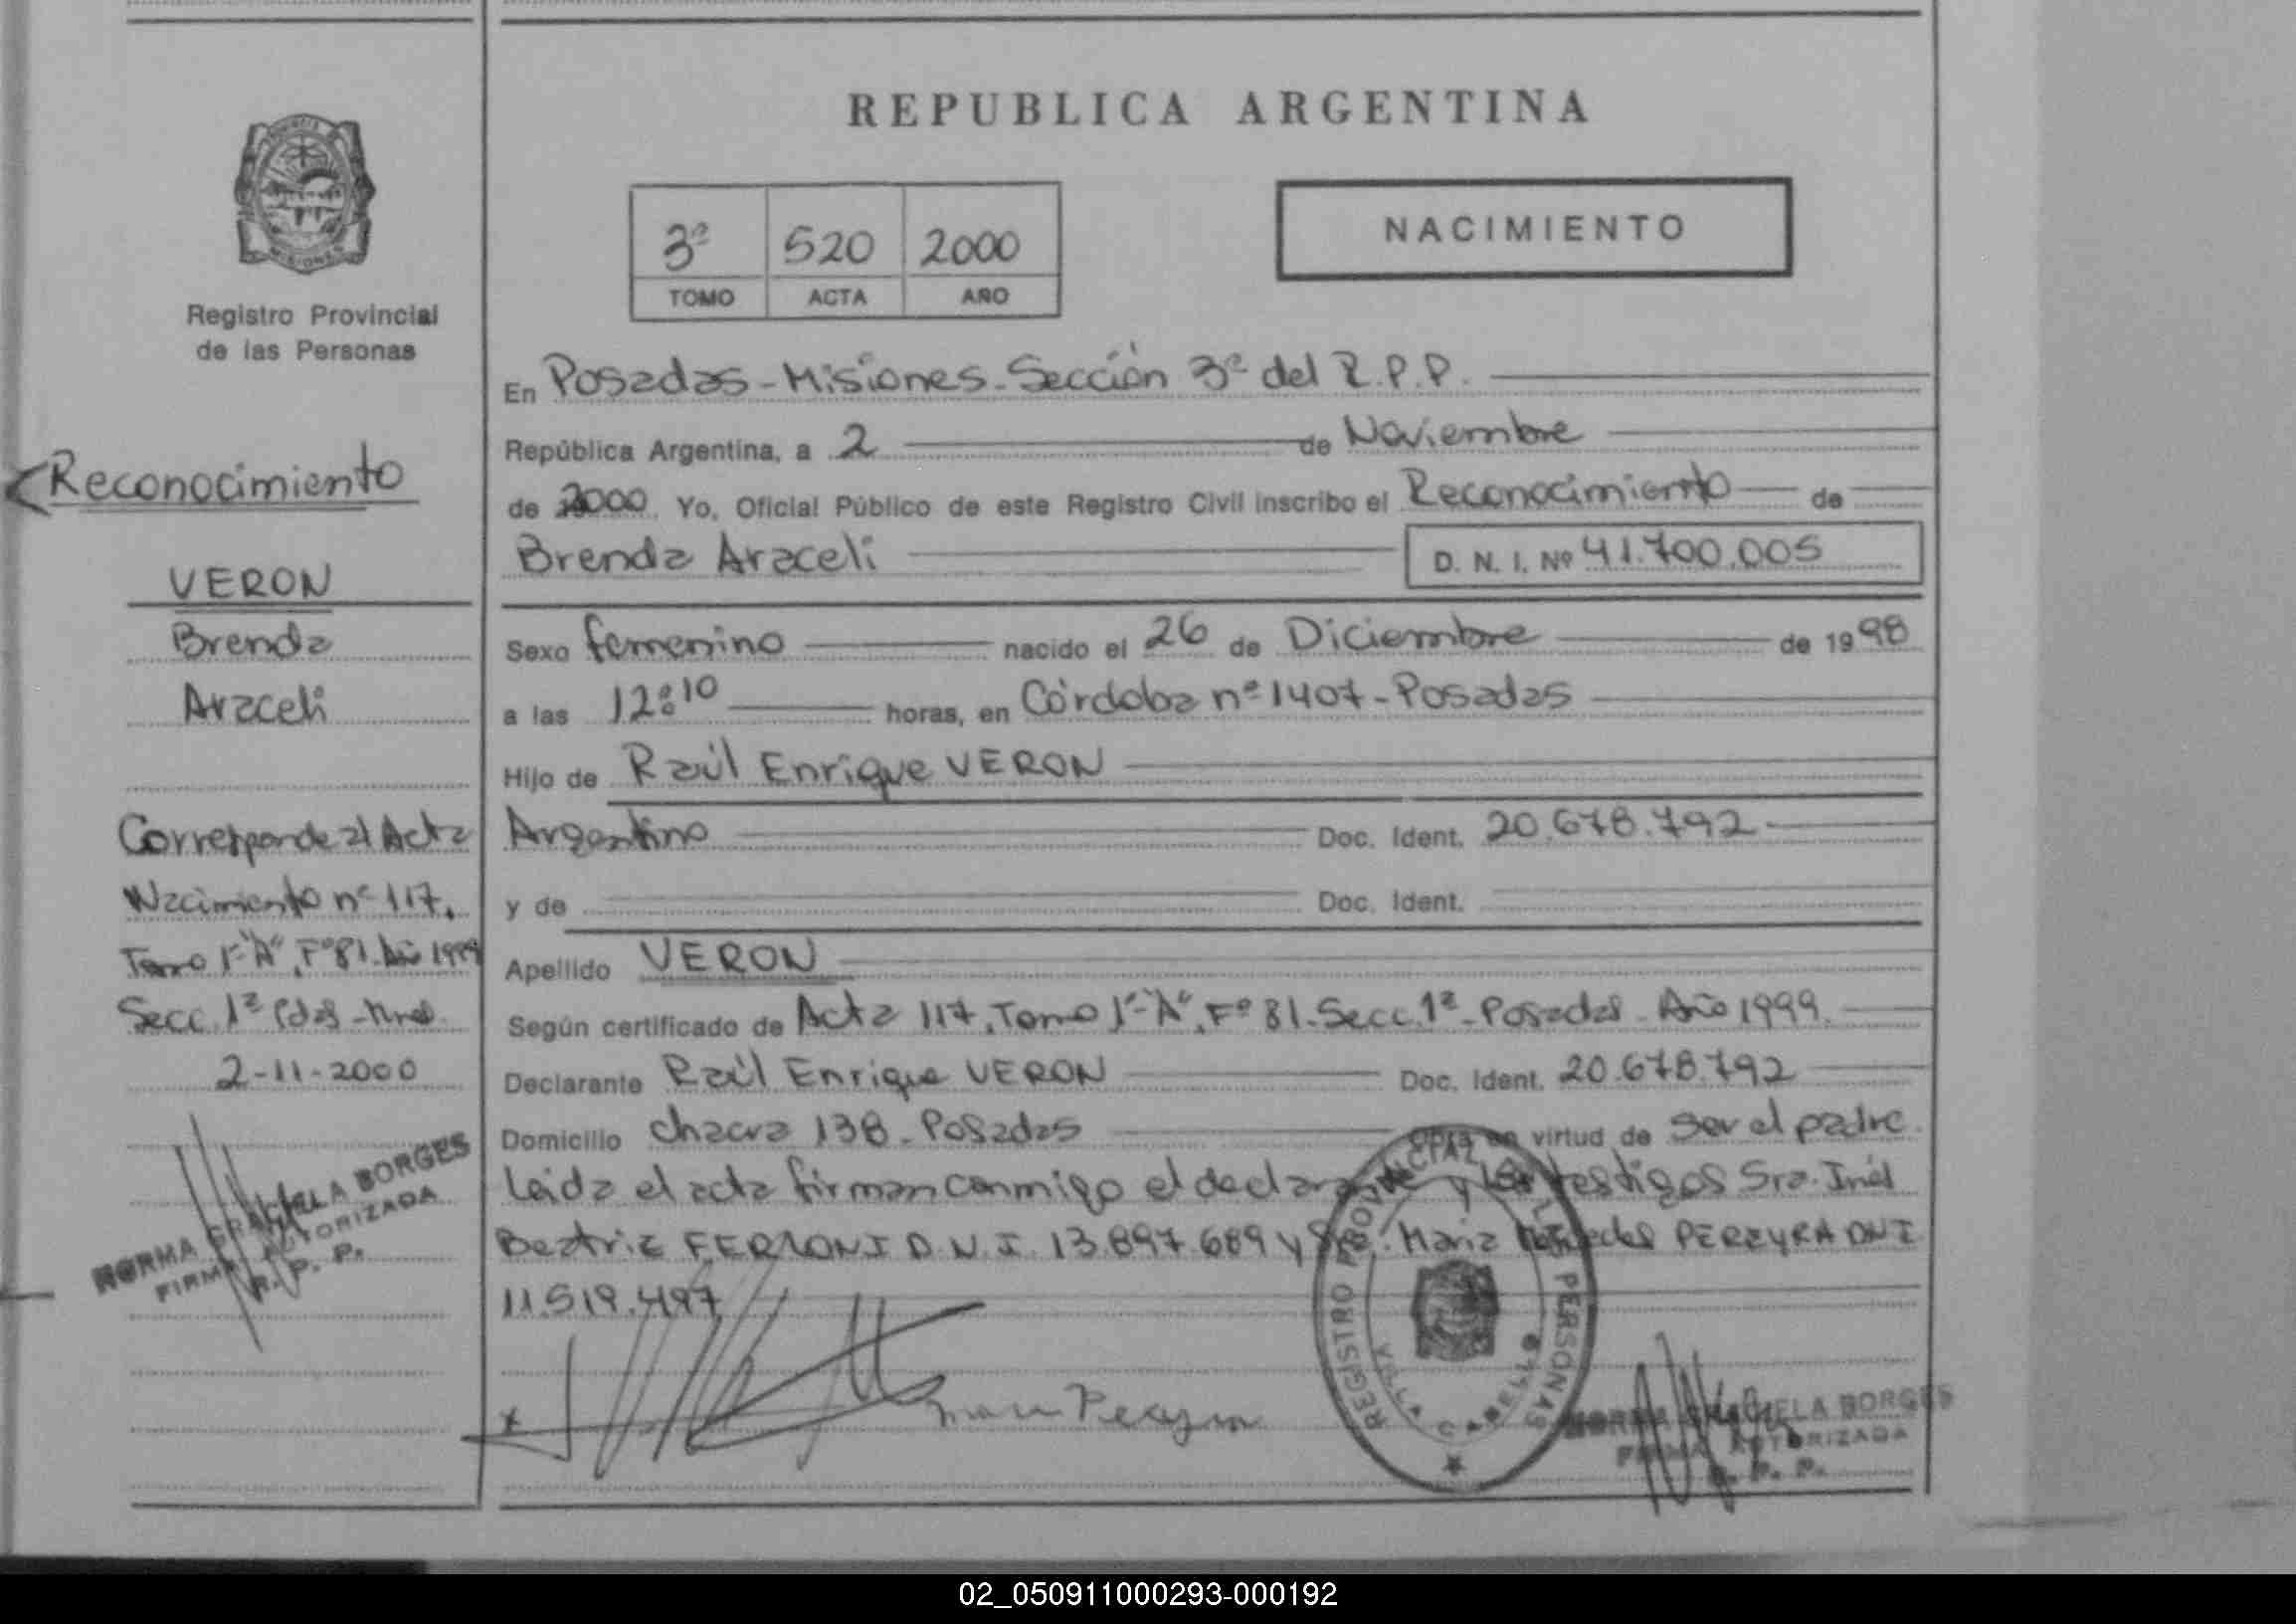 REPUBLICA ARGENTINA
NACIMIENTO
3º 520 2000
TOMO ACTA AÑO
Registro Provincial
de las Personas
Reconocimiento
VERON
Brenda
Araceli
Corresponde al Acta
Nacimiento nº 117,
Tomo 1º "A", Fº 81. Año 1999
Secc. 1ª Pdas - Mnes.
2-11-2000
NORMA GRACIELA BORGES
FIRMA AUTORIZADA
R. P. P.
En Posadas - Misiones - Sección 3ª del R.P.P.
República Argentina, a 2 de Noviembre
de 2000. Yo, Oficial Público de este Registro Civil inscribo el Reconocimiento de
Brenda Araceli D. N. I. Nº 41.700.005
Sexo femenino nacido el 26 de Diciembre de 1998
a las 12:10 horas, en Córdoba nº 1407 - Posadas
Hijo de Raúl Enrique VERON
Argentino Doc. Ident. 20.678.792
y de Doc. Ident.
Apellido VERON
Según certificado de Acta 117, Tomo 1º "A", Fº 81. Secc. 1ª - Posadas - Año 1999.
Declarante Raúl Enrique VERON Doc. Ident. 20.678.792
Domicilio Chacra 138 - Posadas Obra en virtud de ser el padre.
Leida el acta firman conmigo el declarante y los testigos Sra. Inés
Beatriz FERRONI D.N.I. 13.897.689 y Sra. Maria PEREYRA DNI
11.519.497
REGISTRO PROVINCIAL DE LAS PERSONAS
VILLA CABELLO
NORMA GRACIELA BORGES
FIRMA AUTORIZADA
R. P. P.
02_050911000293-000192